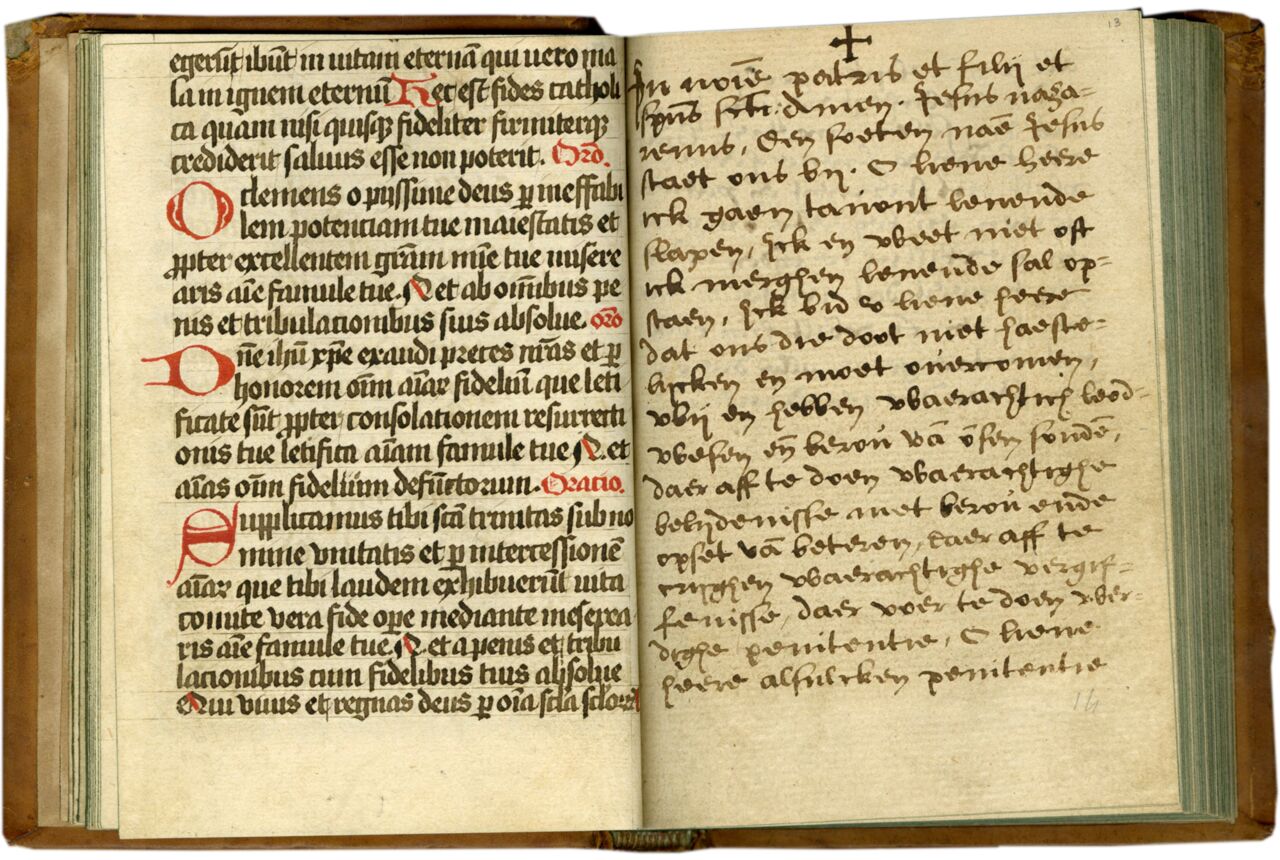 egerūt ibūt in uitam eternā qui uero ma
la in ignem eternū Hec est fides catholi
ca quam nisi quisqꝫ fideliter firmiterqꝫ
crediderit saluus esse non poterit. Oro.
O clemens o pijssime deus ꝑ ineffabi
lem potenciam tue maiestatis et
ꝓpter excellentem grām mīe tue misere
aris aīe famule tue. et ab oīnibus pe
nis et tribulationibus suis absolue. oro
Dn̄e ihū xp̄e exaudi preces nr̄as et ꝑ
honorem oīm aīaꝝ fideliū que leti
ficate sūt ꝓpter consolationem resurrecti
onis tue letifica aīam famule tue et
aīas oīm fidelium defūctorum. Oracio.
Supplicamus tibi scā trinitas sub no
mine vnitatis et ꝑ intercessionē
aīaꝝ que tibi laudem exhibuerūt uita
comite vera fide ope mediante miserea
ris aīe famule tue. et a penis et tribu
lacionibus cum fidelibus tuis absolue
Qui viuis et regnas deus ꝑ oīa scła scłoꝝ
13
In noīe patris et filij et
sp̄us scti. Amen. Jesus naza-
renus, Den soeten naē Jesus
staet ons bij. O lieue heere
ick gaen tauont leuende
slapen, Ick en weet niet oft
ick merghen leuende sal op-
staen, Ick bid v lieue heere
dat ons die doot niet haeste-
lijcken en moet ouercomen,
wij en hebben waerachtich leed-
wesen eñ berou vā ōsen sondē,
daer aff te doen waerachtighe
belijdenisse met berou ende
opset vā beteren, daer aff te
crijghen waerachtighe vergif-
fenisse, daer voer te doen wer-
dighe penitentie, O lieue
heere alsulcken penitentie
14